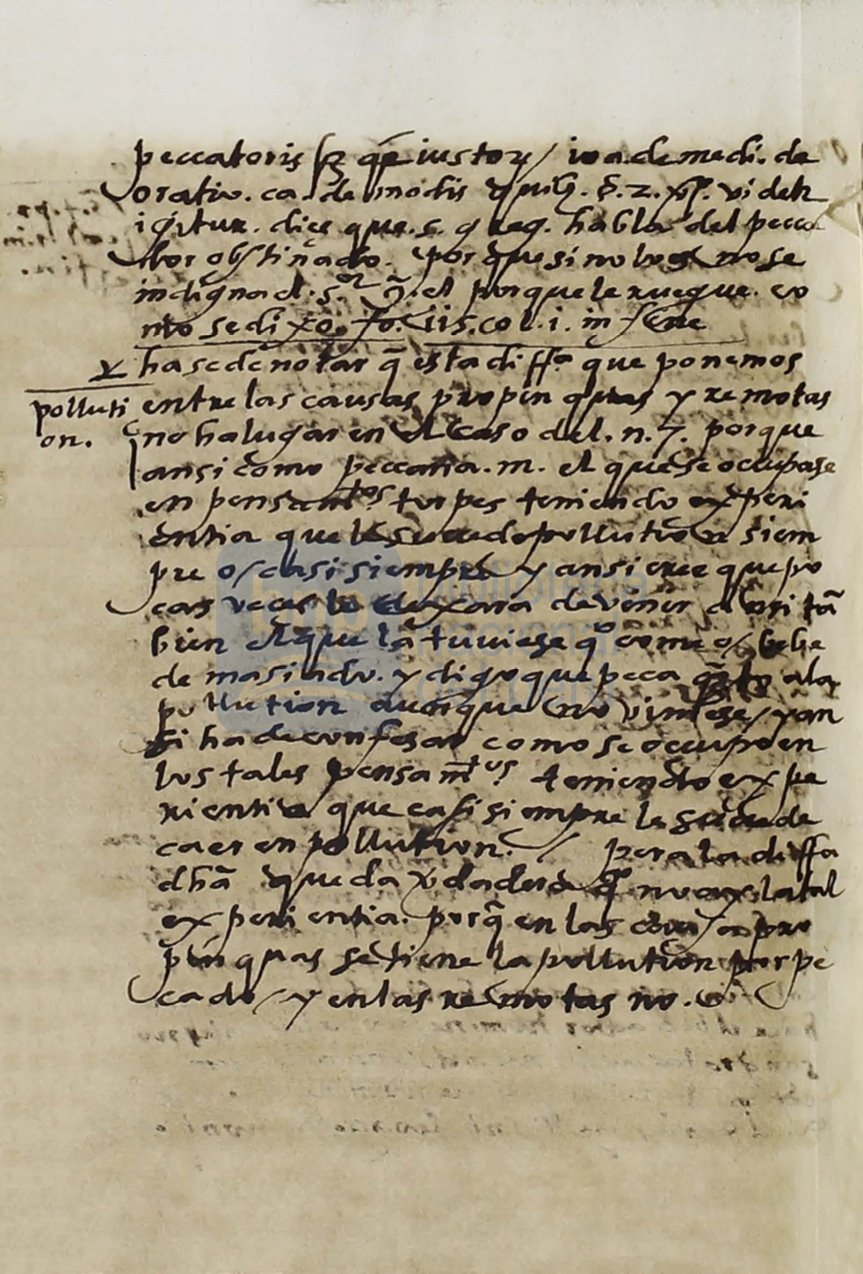 peccatoris qͣ iustoꝝ / ioa. de medi. de
oratio. ca. de modis quibꝫ. §. 2. xp̄. videt᷑
igitur. dice que. s. greg. habla del pecca
dor obstinado. porque si no lo es no se
indigna d. s.ᵒʳ q̄. el porque le ruegue. co
mo se dixo. fo. iis. col. i. in fine
y hase de notar q̄ esta diffᵃ que ponemos
polluti
on.
entre las causas propinquas y remotas
no ha lugar en el caso del. n. 7. porque
ansi como peccaria. m. el que se occupase
en pensamᵗᵒˢ torpes teniendo experi
entia que le sucede pollution siem
pre o / casi siempre y ansi cree que po
cas veces le dexara de venir a osi tā
bien el que la tuviese qᵒ come o / bebe
demasiado. y digo que peca qᵗᵒ a la
pollution aunque no viniese / y an
si ha de confesar como se occupo en
los tales pensamᵗᵒˢ teniendo expe
rientia que casi siempre le sucede
caer en pollution. / pero la diffᵃ
dhā queda verdadera qᵒ no ay la tal
experientia. porq̄ en las causas pro
pinquas se tiene la pollution por pe
cado / y en las remotas no.